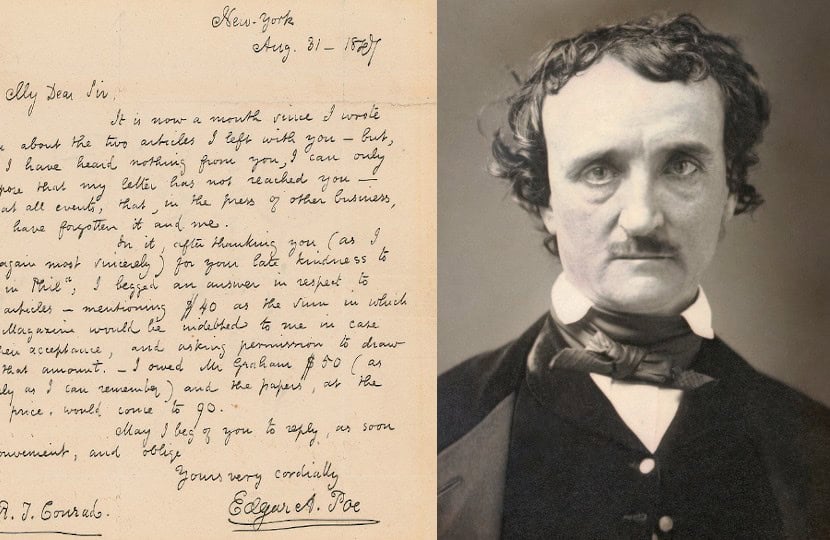 New-York
Aug. 31 – 1847
My Dear Sir,
It is now a month since I wrote
u about the two articles I left with you – but,
I have heard nothing from you, I can only
pose that my letter has not reached you –
at all events, that, in the press of other business,
have forgotten it and me.
In it, after thanking you (as I
again most sincerely) for your late kindness to
in Phila, I begged an answer in respect to
articles – mentioning $40 as the sum in which
Magazine would be indebted to me in case
acceptance, and asking permission to draw
that amount. – I owed Mr Graham $50 (as
ely as I can remember) and the papers, at the
price, would come to 90.
May I beg of you to reply, as soon
onvenient, and oblige
Yours very cordially
Edgar A. Poe
R. T. Conrad.